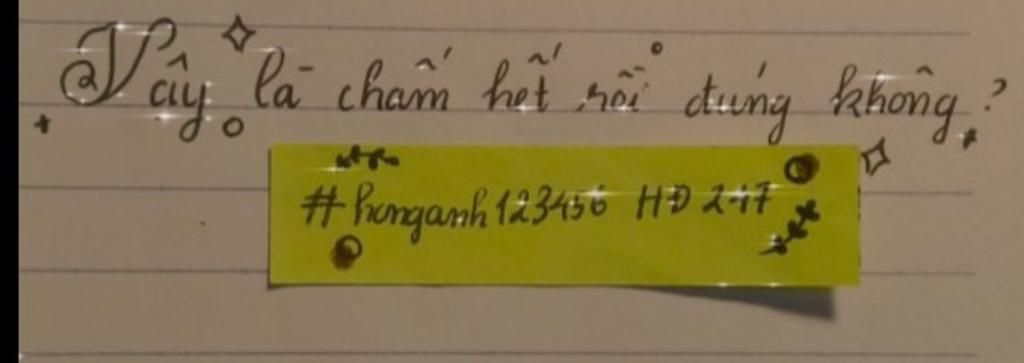 Vậy là chấm hết rồi đúng không?
#honganh123456 HĐ 247